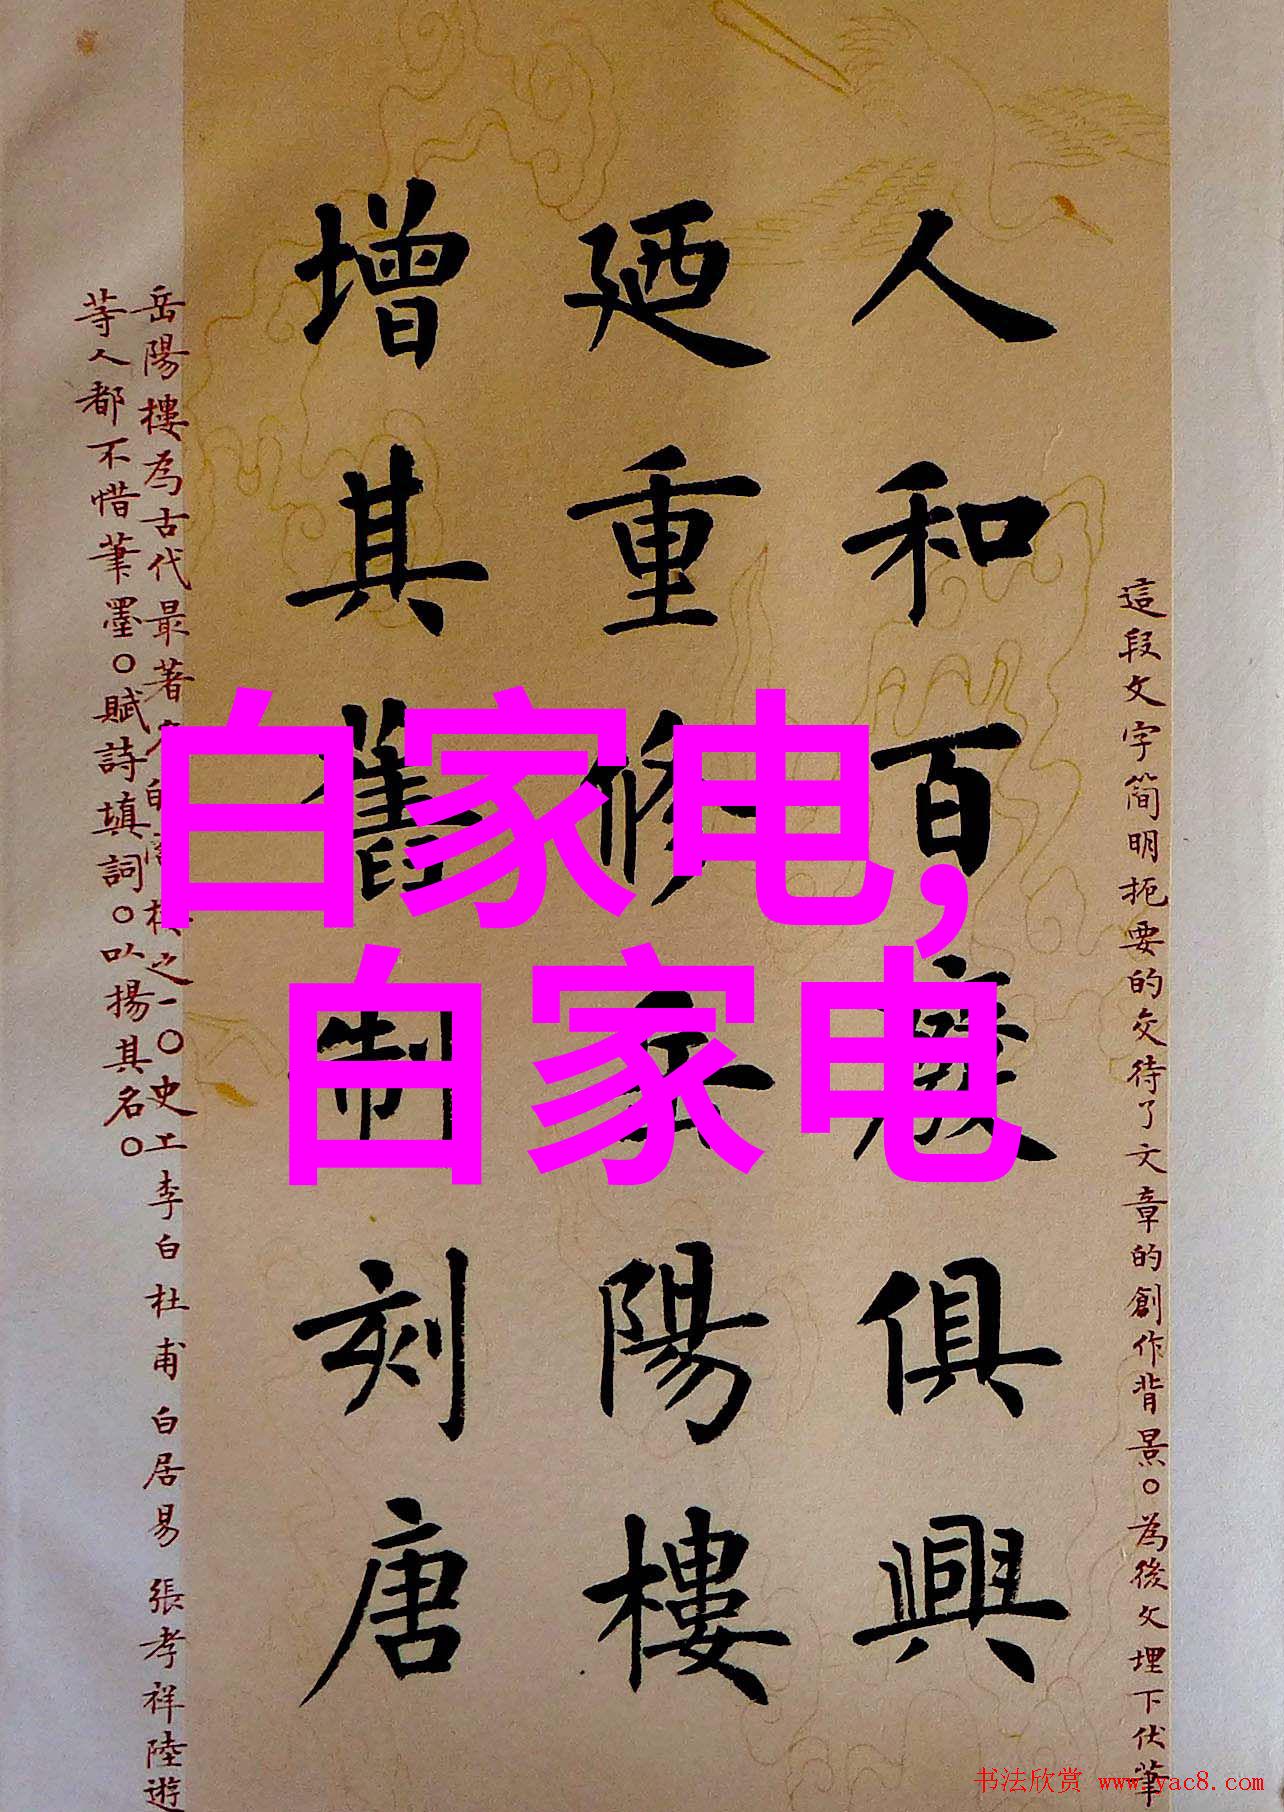 這段文字简明扼要的交待了文章的創作背景。為後文埋下伏筆
人和百廢俱興
廼重修岳陽樓
增其舊制刻唐
岳陽樓為古代最著名的樓之一。史上李白杜甫白居易張孝祥陸遊
等人都不惜筆墨。賦詩填詞。以揚其名。
白家电,
白家电
书法欣赏 www.yac8.com